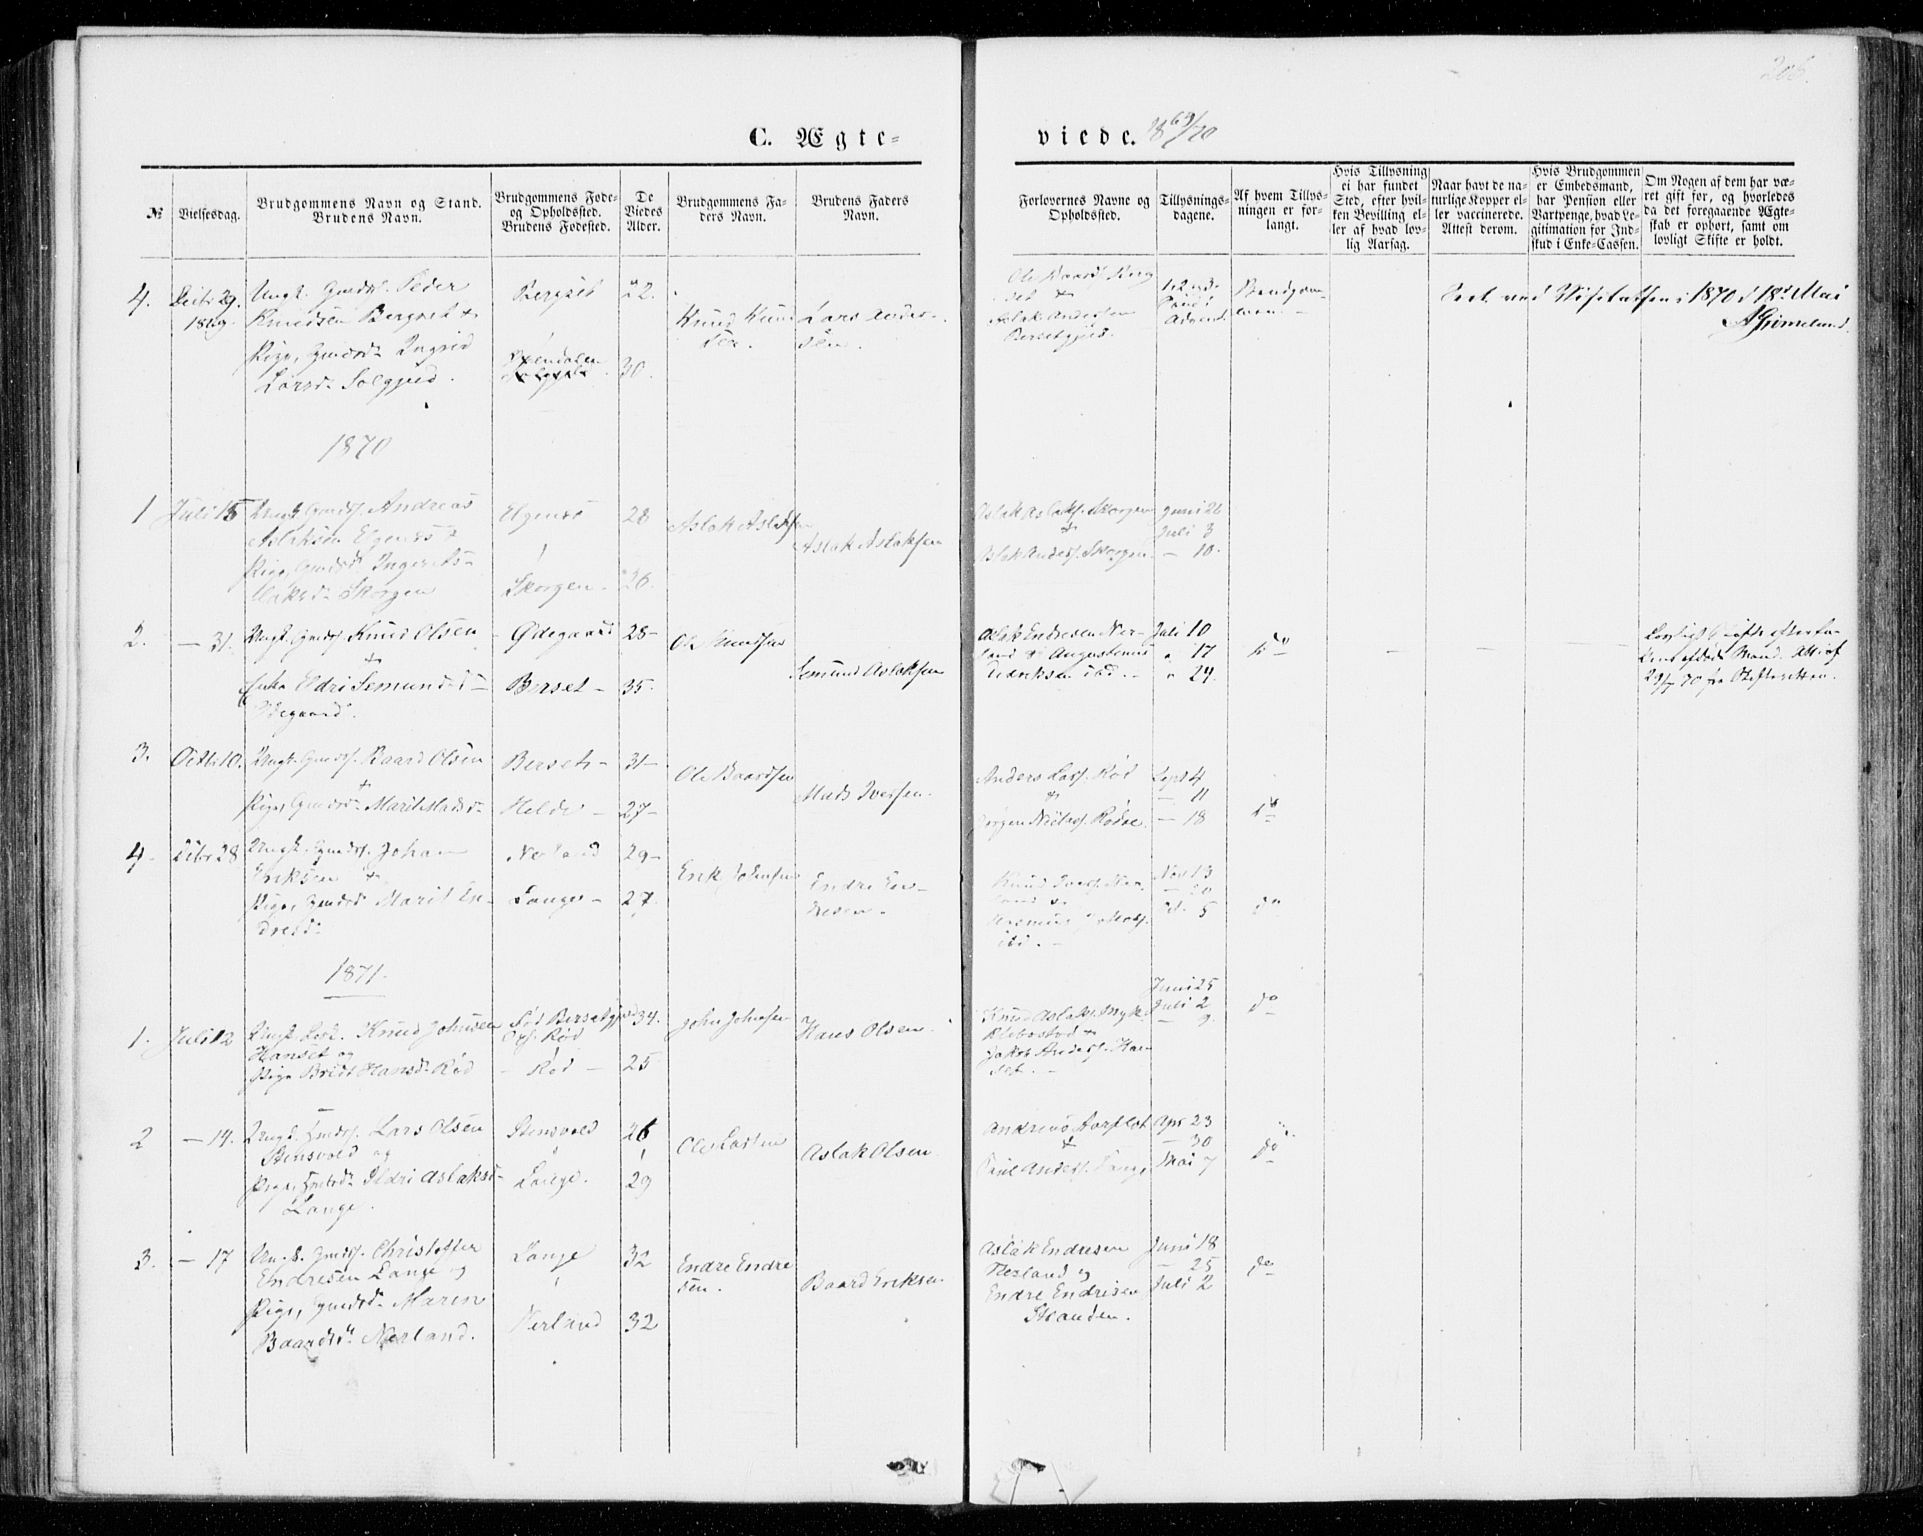 206.
C. Ægte-
viede. 1869/70
№
Vielsesdag.
Brudgommens Navn og Stand.
Brudens Navn.
Brudgommens Føde-
og Opholdssted.
Brudens Fødested.
De
Viedes
Alder.
Brudgommens Fa-
ders Navn.
Brudens Faders
Navn.
Forlovernes Navne og
Opholdssted.
Tillysnings-
dagene.
Af hvem Tillys-
ningen er for-
langt.
Hvis Tillysning
ei har fundet
Sted, efter hvil-
ken Bevilling el-
ler af hvad lov-
lig Aarsag.
Naar havt de na-
turlige Kopper el-
ler vaccinerede.
Attest derom.
Hvis Brudgommen
er Embedsmand,
har Pension eller
Vartpenge, hvad Le-
gitimation for Ind-
skud i Enke-Cassen.
Om Nogen af dem har væ-
ret gift før, og hvorledes
da det foregaaende Ægte-
skab er ophørt, samt om
lovligt Skifte er holdt.
4.
Decbr 29.
1869.
Ungk. Gmds. Peder
Knudsen Bergset +
Pige, Gmdsd. Ingrid
Larsd. Solgjed.
Bergset
22.
30.
Knud Knud
sen
Lars Ander-
sen.
Ole Baards. Berg
set +
Aslak Andersen
Bersetgjed.
Advent
Brudgom-
men.
Seet ved Visitatsen i 1870 d 18d Mai
A Grimelund.
1870
1
Juli 15
Ungk. Gmds. Andreas
Aslaksen Elgenes +
Pige, Gmdsd. Ingerid As-
laksd. Skorgen
Elgenes
Skorgen.
28
26.
Aslak Aslaksen
Aslak Aslaksen
Aslak Aslaks. Skorgen
+
Aslak Anders. Skorgen
Juni 26
Juli 3
— 10.
2.
— 31.
Ungk. Gmds. Knud Olsen
+
Enke Eldri Semundsd.
Ødegaard.
Ødegaard
Berset –
28–
35.
Ole Knudsen
Semund Aslaksen
Aslak Endresen Ner-
land & Augustinus
Didriksen ibd.
Juli 10
" 17
" 24.
do
Lovligt Skifte efter fo-
rrige afdøde Mand. Att. af
29/7 70 fra Skifteretten.
3.
Octbr 10.
Ungk. Gmds. Baard Olsen
+
Pige, Gmdsd. Marit Madsd.
Berset–
Helde –
31–
27–
Ole Baardsen
Mads Iversen.
Anders Lars. Rød
+
Jørgen Niels. Rødse
Sept 4
— 11
— 18
do
4.
Decbr 28
Ungk. Gmds. Johan
Eriksen +
Pige, Gmdsd. Marit En-
dresd.
Nerland
Lange –
29–
27.
Erik Johnsen
Endre En-
dresen.
Knud Ivers. Ner
land +
ibd. –
Nov 13
— 20
D. 5
do
1871.
1.
Juli 12
Ungk. Løsk. Knud Johnsen
Hanset og
Pige Brit Hansd. Rød
Fød Bersetgjed
Oph. Rød
– Rød –
34.
25
John Johnsen
Hans Olsen.
Knud Aslaks. Myk
lebostad +
Jakob Anders. Han
set. –
Juni 25
Juli 2
— 9.
do
2
— 14.
Ungk. Gmds. Lars Olsen
Stensvold og
Pige, Gmdsd. Ildri Aslaksd.
Lange.
Stensvold
Lange.
26
29
Ole Larsen
Aslak Olsen.
Andreas Aarflot
+
Poul Anders. Lange
Apr 23
— 30
Mai 7
do
3.
— 17
Ungk. Gmds. Christoffer
Endresen Lange og
Pige, Gmdsd. Maren
Baardsd. Nerland.
Lange
Nerland
32
32
Endre Endre
sen.
Baard Eriksen
Aslak Endresen
Nerland og
Endre Endresen
Stranden.
Juni 18
— 25
Juli 2
do